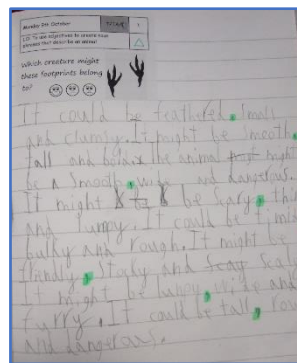 Monday 7th October
L.O. To use adjectives to create noun
phrases that describe an animal
Which creature might
these footprints belong
to?
It could be feathered, small
and clamy. It might be smooth,
tall and be animal might
be a smooth, wide and dangerous.
It might be scary, thi
and lumpy. It could be timi
bulky and rough. It might be
friendly, Stocky and Scal
It might be bumpy, wide and
furry. It could be tall, rou
and dangerous.